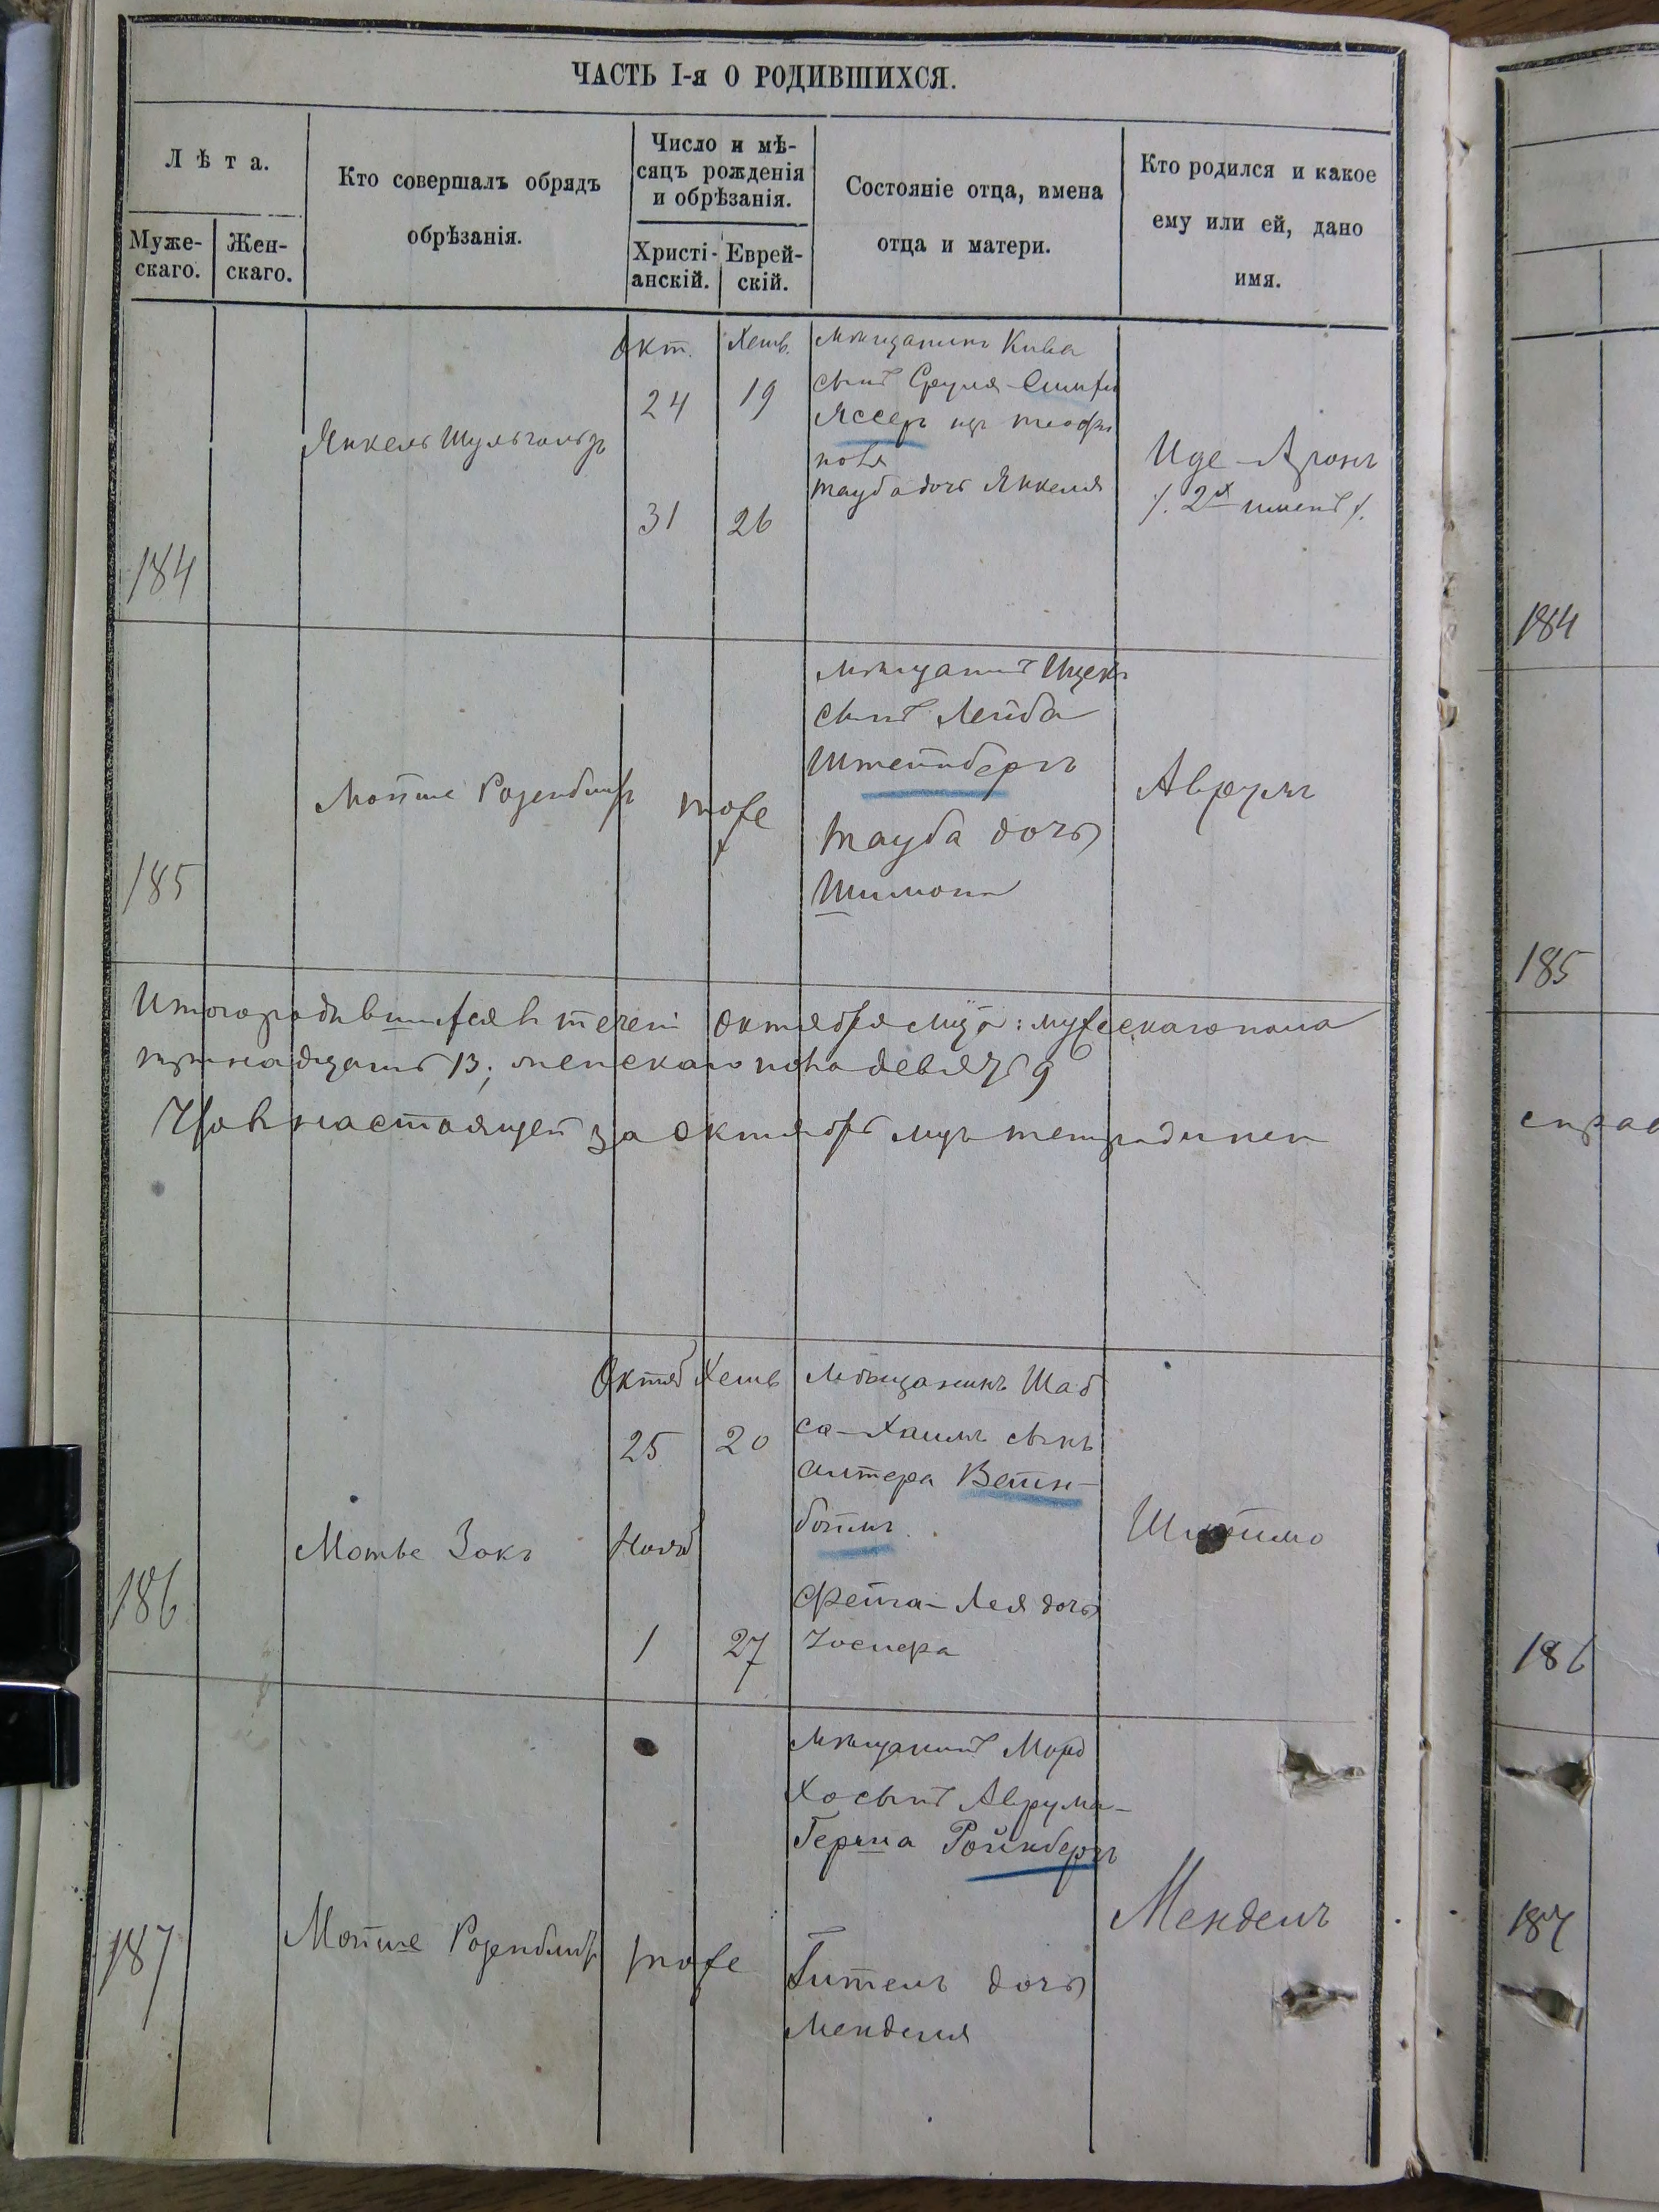 ЧАСТЬ I-я О РОДИВШИХСЯ.
Лѣта.
Муже-
скаго.
Жен-
скаго.
Кто совершалъ обрядъ
обрѣзанія.
Число и мѣ-
сяцъ рожденія
и обрѣзанія.
Христі-
анскій.
Еврей-
скій.
Состояніе отца, имена
отца и матери.
Кто родился и какое
ему или ей, дано
имя.
184
Янкель Шульгользъ
Окт.
24
31
Хешв.
19
26
Мѣщанинъ Кива
сынъ Сруля
Яссеръ изъ
Тауба дочь Янкеля
Иде-Аронъ
/. 2хъ именъ /.
185
Мойше Розенблитъ
тоже
Мѣщанинъ Ицекъ
сынъ Лейба
Штейнбергъ
Тауба дочь
Шимона
Аврумъ
Итого родившихся въ течені Октября мца: мужескаго пола
тринадцать 13; женскаго пола девять 9
Что въ настоящей за октябрь мцъ тетради
186
Мотье Закъ
Октяб
25
Нояб
1
Хешв
20
27
Мѣщанинъ Шаб
са-Хаимъ сынъ
Алтера Вейн-
боймъ
Фейга-Лея дочь
Іосифа
187
Мойше Розенблитъ
тоже
Мѣщанинъ Морд
хо сынъ Аврума-
Герша Ройнбергъ
Гитель дочь
Менделя
Мендель
184
185
186
187